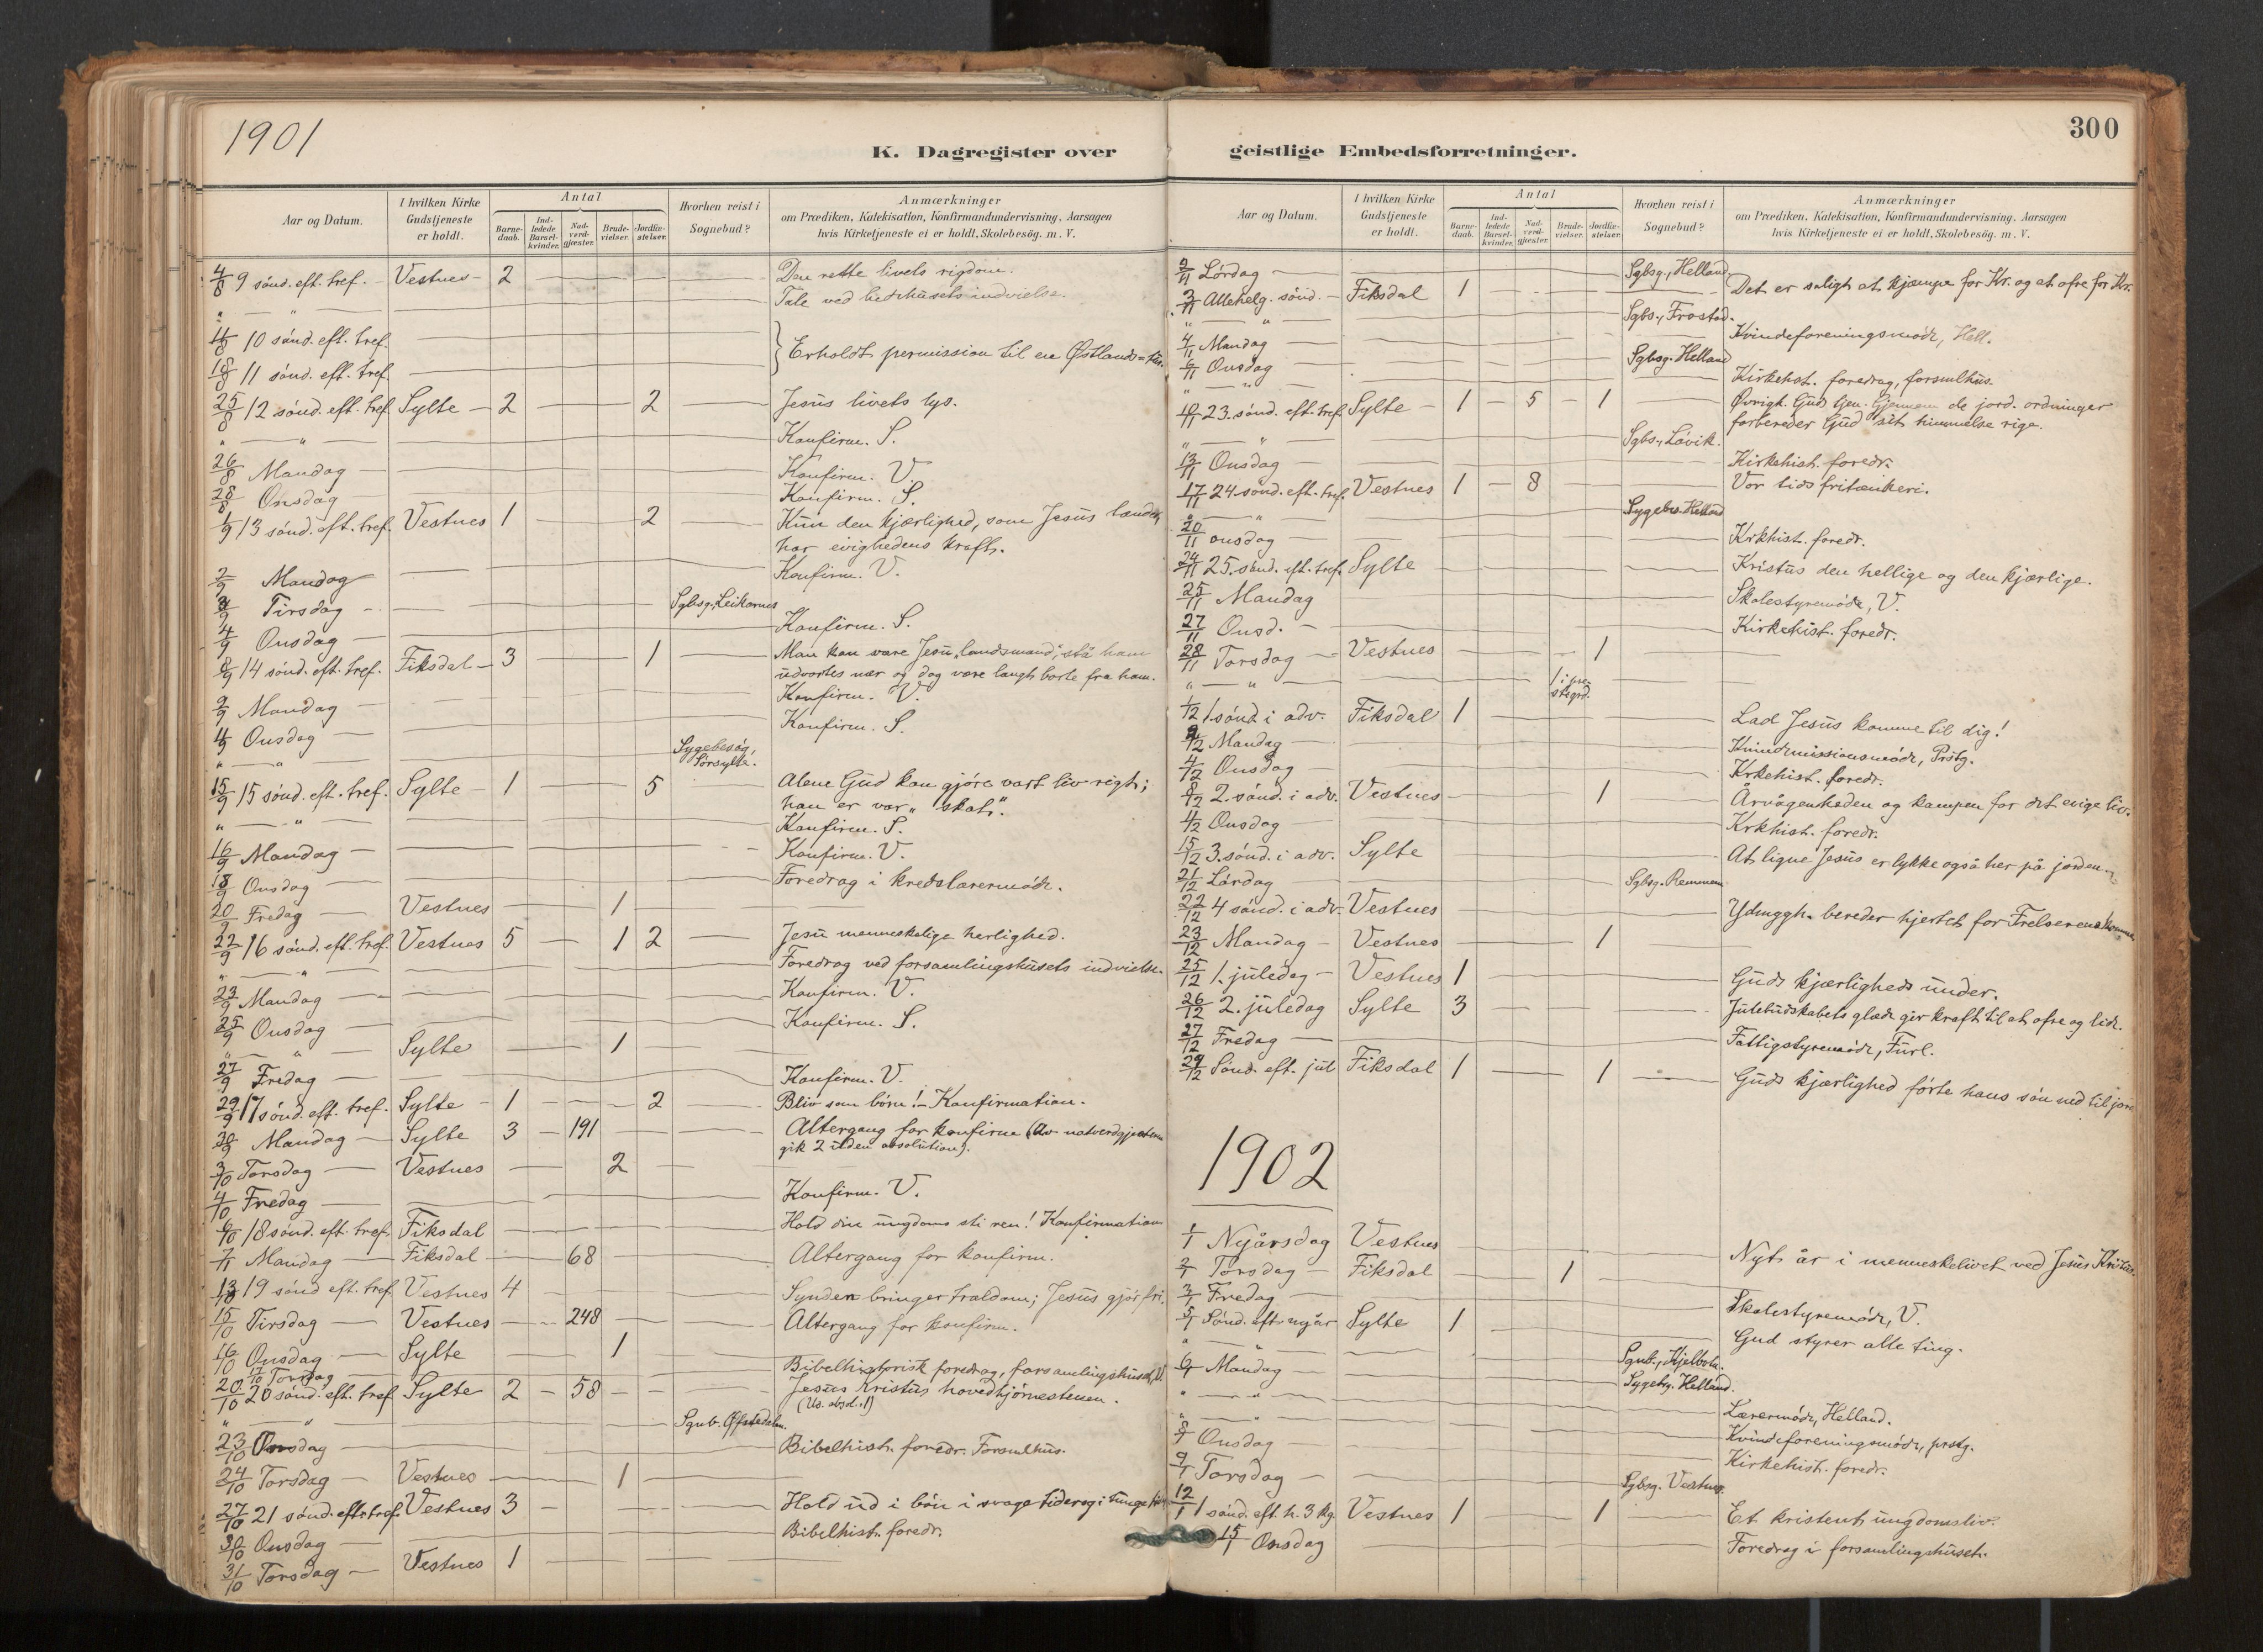 1901
K. Dagregister over
Aar og Datum.
I hvilken Kirke Gudstjeneste er holdt.
Antal
Barnedaab.
Indledede Barselkvinder.
Nadverdgjester.
Brudevielser.
Jordfæstelser.
Hvorhen reist i Sognebud?
Anmærkninger
om Prædiken, Katekisation, Konfirmandundervisning. Aarsagen
hvis Kirketjeneste ei er holdt, Skolebesög. m. V.
4/8 9 sönd. eft. tref. — Vestnes — 2 Den rette livets rigdom.
" — " Tale ved bedehusets indvielse.
11/8 10 sönd. eft. tref.
18/8 11 sönd. eft. tref. } Erholdt permission til en Østlands-
25/8 12 sönd. eft. tref. Sylte — 2 — 2 Jesus livets lys.
" — " Konfirm. S.
26/8 Mandag — Konfirm. V.
28/8 Onsdag — Konfirm. S.
1/9 13 sönd. eft. tref. Vestnes 1 — 2 Kun den kjærlighed, som Jesus tænder,
har evighedens kraft.
2/9 Mandag Konfirm. V.
3/9 Tirsdag — Sgbsg. Leikarnes
4/9 Onsdag — Konfirm. S.
8/9 14 sönd. eft. tref. Fiksdal — 3 — 1 Man kan være Jesu "landsmand", stå ham
udvortes nær og dog være langt borte fra ham.
9/9 Mandag — Konfirm. V.
11/9 Onsdag — Konfirm. S.
" — " Sygebesög, Sörsylte.
15/9 15 sönd. eft. tref. Sylte — 1 — 5 Alene Gud kan gjöre vart liv rigt;
han er var "skat".
" — " Konfirm. S.
16/9 Mandag — Konfirm. V.
18/9 Onsdag — Foredrag i kredslærermöde.
20/9 Fredag — Vestnes — 1
22/9 16 sönd. eft. tref. Vestnes 5 — 1 2 Jesu menneskelige herlighed.
" — " Foredrag ved forsamlingshusets indvielse.
23/9 Mandag — Konfirm. V.
25/9 Onsdag — Konfirm. S.
" — " Sylte — 1
27/9 Fredag — Konfirm. V.
29/9 17 sönd. eft. tref. Sylte — 1 — 2 Bliv som börn! — Konfirmation.
30/9 Mandag — Sylte 3 — 191 Altergang for konfirm (Av natverdgjesterne
gik 2 uden absolution).
3/10 Torsdag — Vestnes — 2
4/10 Fredag — Konfirm. V.
6/10 18 sönd. eft. tref. Fiksdal Hold din ungdoms sti ren! Konfirmation
7/ Mandag — Fiksdal — 68 Altergang for konfirm.
13/10 19 sönd eft. tref. Vestnes 4 Synden bringer trældom; Jesus gjör fri.
15/10 Tirsdag — Vestnes — 248 Altergang for konfirm.
16/10 Onsdag — Sylte 1
17/10 Torsdag Bibelhistorisk foredrag, forsamlingshuset, V.
20/10 20 sönd. eft. tref. Sylte 2 — 58 Jesus Kristus hovedhjörnestenen.
(Us. absol. 1)
" — " Sgnb.
23/10 Onsdag — Bibelhist. foredr. Forsmlhus.
24/10 Torsdag — Vestnes — 1
27/10 21 sönd. eft. tref. Vestnes 3 — Hold ud i bön i svage tider og i tunge
30/10 Onsdag — Bibelhist. foredr.
31/10 Torsdag — Vestnes 1
300
geistlige Embedsforretninger.
Aar og Datum.
I hvilken Kirke Gudstjeneste er holdt.
Antal
Barnedaab.
Indledede Barselkvinder.
Nadverdgjester.
Brudevielser.
Jordfæstelser.
Hvorhen reist i Sognebud?
Anmærkninger
om Prædiken. Katekisation, Konfirmandundervisning. Aarsagen
hvis Kirketjeneste ei er holdt, Skolebesög. m. V.
2/11 Lördag — Sgbsg., Helland.
3/11 Allehelg. sönd. — Fiksdal 1 Det er saligt at kjæmpe for Kr. og at ofre for Kr.
" — " Sgbs., Frostad.
4/11 Mandag Kvindeforeningsmöde, Hell.
6/11 Onsdag Sgbsg. Helland
" — " Kirkehist. foredrag, forsmlhus.
10/11 23. sönd. eft. tref. Sylte — 1 — 5 — 1 Øvrigh. Guds tjen. Gjennem de jord. ordninger
forbereder Gud sit himmelse rige.
" — " Sgbs., Lövik.
13/11 Onsdag — Kirkehist. foredr.
17/11 24. sönd. eft. tref. Vestnes 1 — 8 Vor tids fritænkeri.
" — " Sygebes. Helland
20/11 onsdag — Krkhist. foredr.
24/11 25. sönd. eft. tref. Sylte Kristus den hellige og den kjærlige.
25/11 Mandag Skolestyremöde, V.
27/11 Onsd. — Kirkehist. foredr.
28/11 Torsdag — Vestnes — 1
" — " 1 i prestegrd.
1/12 1 sönd i adv. Fiksdal 1 Lad Jesus komme til dig!
2/12 Mandag — Kvindemissionsmöde, Prstg.
4/12 Onsdag Krkehist. foredr.
8/12 2. sönd. i adv. Vestnes — 1 Årvågenheden og kampen for det evige liv.
4/12 Onsdag Krkhist. foredr.
15/12 3. sönd. i adv. Sylte At ligne Jesus er lykke også her på jorden.
21/12 Lördag Sgbsg. Remmem
22/12 4 sönd. i adv. Vestnes Ydmygh. bereder hjertet for Frelserens komme
23/12 Mandag — Vestnes — 1
25/12 1. juledag — Vestnes 1 Guds kjærligheds under.
26/12 2. juledag Sylte 3 Julebudskabets glæde gir kraft til at ofre og lide.
27/12 Fredag — Fattigstyremöde, Furl.
29/12 Sönd. eft. jul Fiksdal 1 — 1 Guds kjærlighed förte hans sön ned til jord
1902
1/1 Nyårsdag Vestnes Nyt år i menneskelivet ved Jesus Kristus.
2/1 Torsdag — Fiksdal — 1
3/1 Fredag Skolestyremöde, V.
5/1 Sönd. eft. nyår Sylte 1 Gud styrer alle ting.
" — " Sgnb.,
6/1 Mandag Sygebsg. Helland.
" — " Lærermöde, Helland.
" — " Kvindeforeningsmöde, prstg.
8/1 Onsdag Kirkehist. foredr.
9/1 Torsdag — Sgbsg. Vestnes.
12/1 1 sönd. eft. h. 3 kg. Vestnes 1 — 1 Et kristent ungdomsliv.
15/1 Onsdag Foredrag i forsamlingshuset.